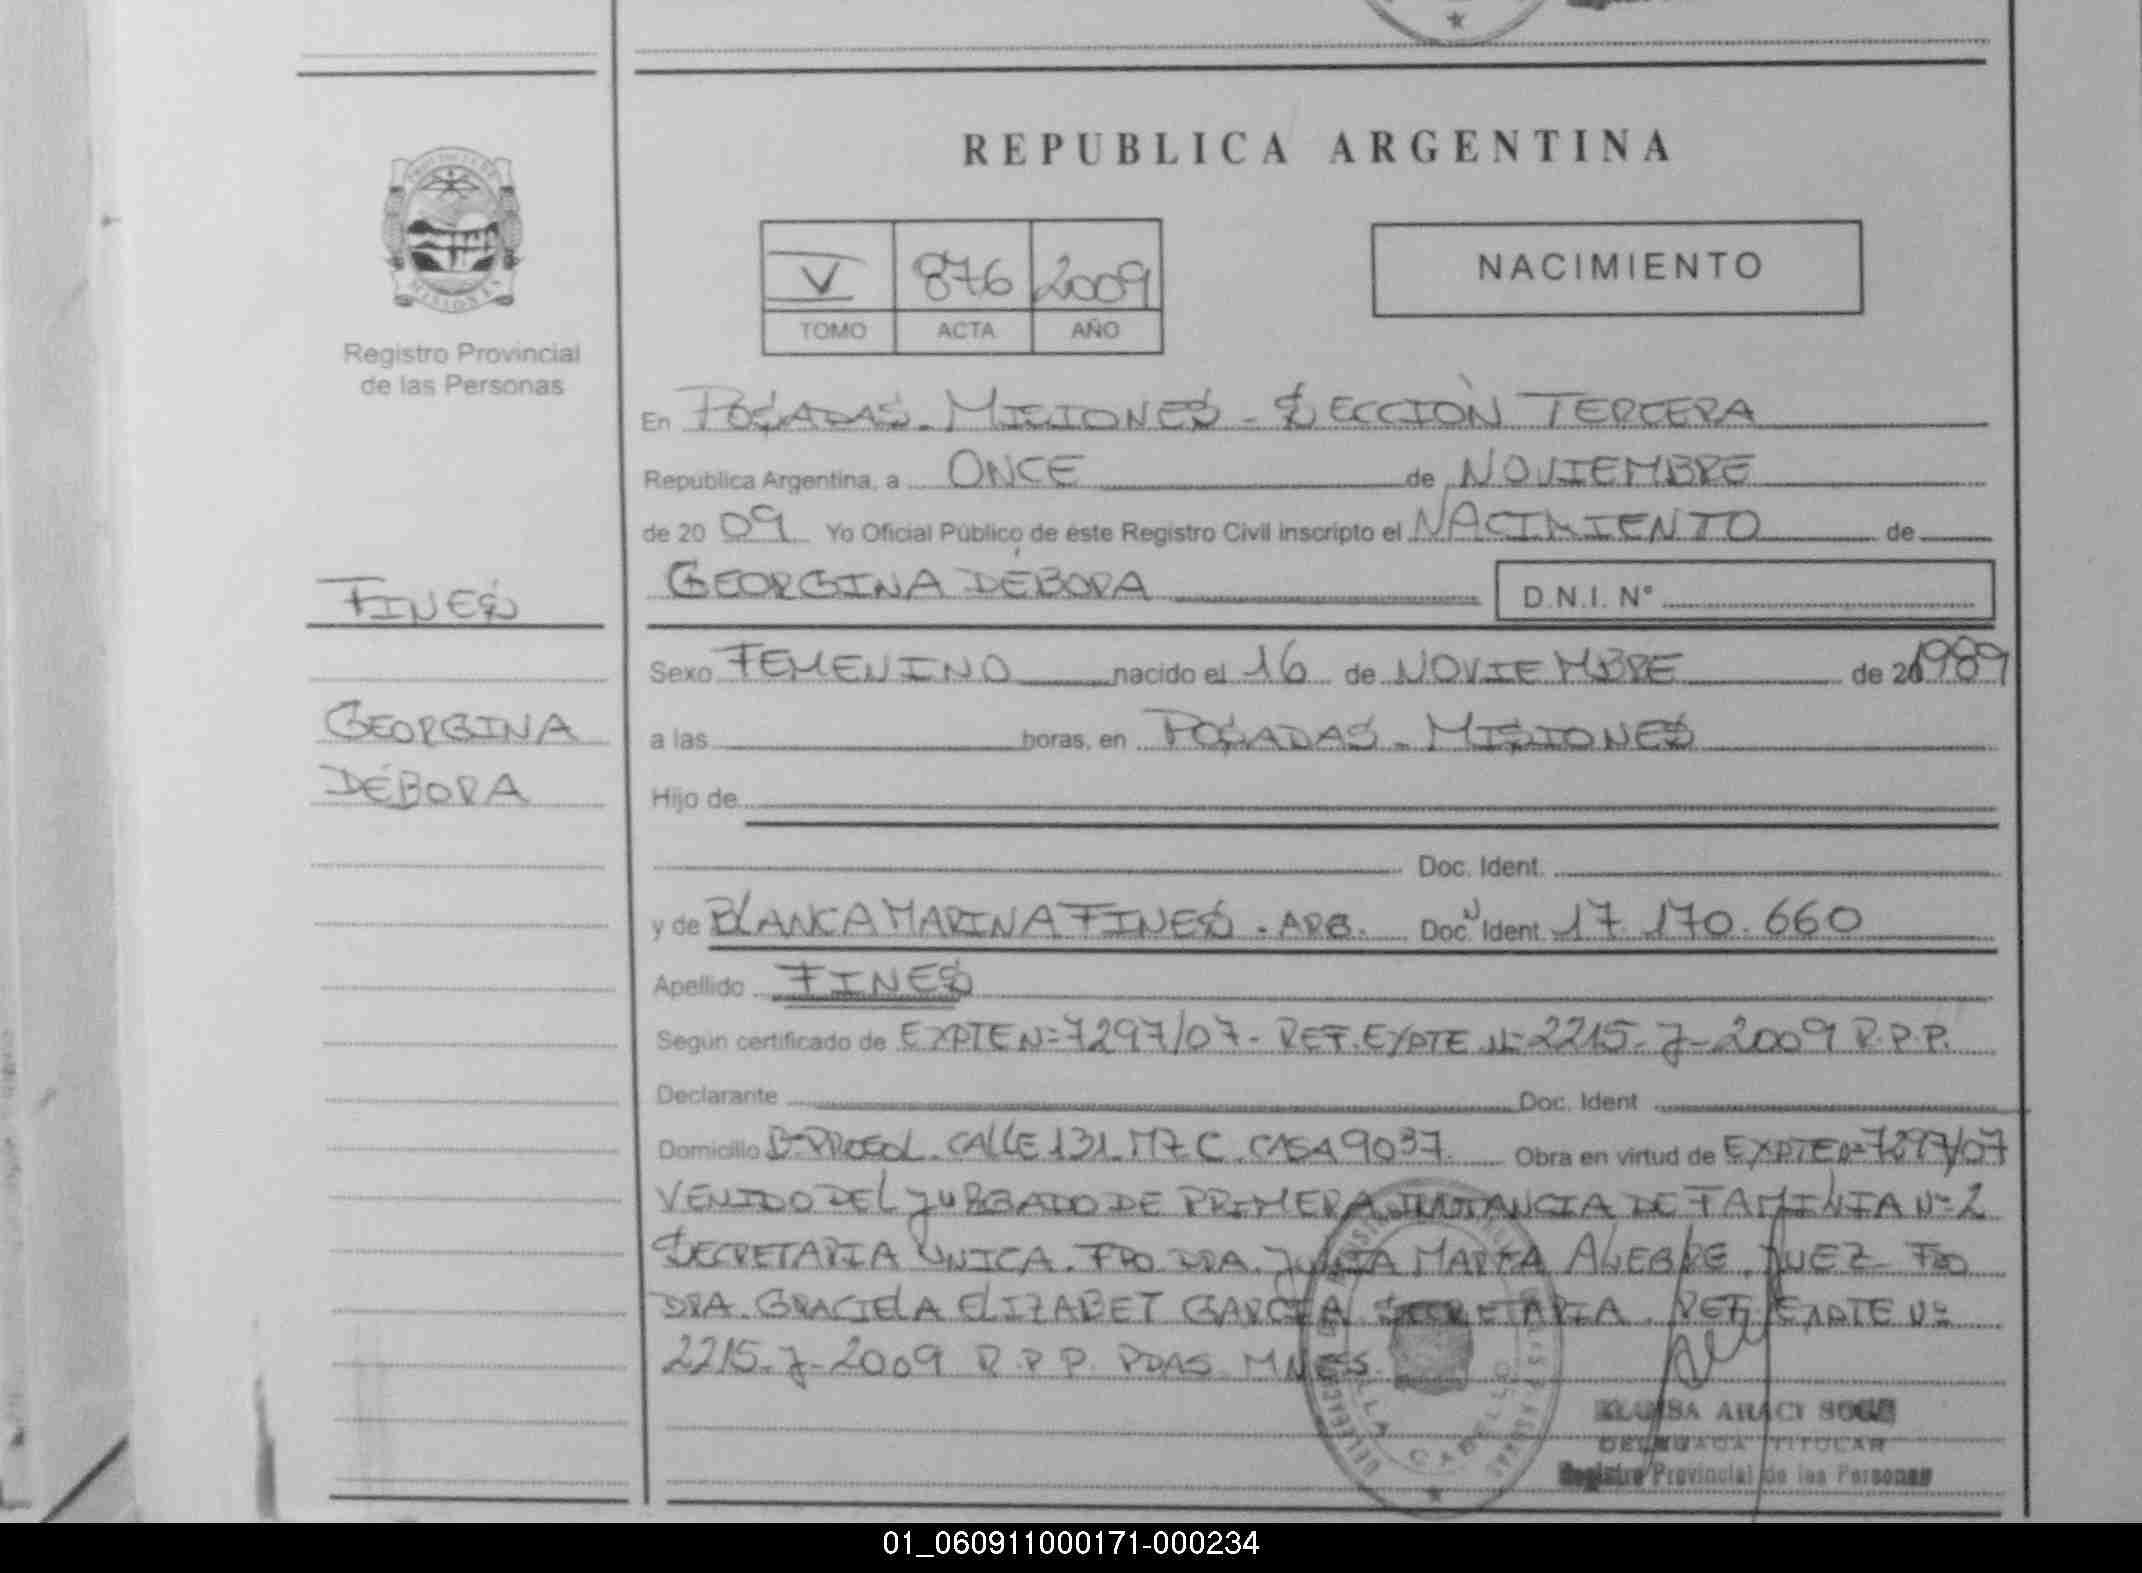 REPUBLICA ARGENTINA
V 876 2009
TOMO ACTA AÑO
NACIMIENTO
PROVINCIA DE MISIONES
Registro Provincial
de las Personas
En POSADAS - MISIONES - SECCIÓN TERCERA
Republica Argentina, a ONCE de NOVIEMBRE
de 20 09 Yo Oficial Público de éste Registro Civil inscripto el NACIMIENTO de
GEORGINA DÉBORA D.N.I. N°
FINES
Sexo FEMENINO nacido el 16 de NOVIEMBRE de 1989
GEORGINA
DÉBORA
a las horas, en POSADAS - MISIONES
Hijo de
Doc. Ident.
y de BLANCA MARINA FINES - ARG. Doc. Ident. 17.170.660
Apellido FINES
Según certificado de EXPTE Nº 7297/07 - REF. EXPTE Nº 2215-J-2009 R.P.P.
Declarante Doc. Ident
Domicilio Bº PROSOL. CALLE 131. MZ C. CASA 9037. Obra en virtud de EXPTE Nº 7297/07
VENIDO DEL JUZGADO DE PRIMERA INSTANCIA DE FAMILIA Nº 2
SECRETARIA UNICA. FDO DRA. MARTA ALEGRE. JUEZ FDO
DRA. GRACIELA ELIZABET GARCIA SECRETARIA. REF. EXPTE Nº
2215-J-2009 R.P.P. PDAS. MNES.
ARACI
DELEGADA TITULAR
Registro Provincial de las Personas
01_060911000171-000234